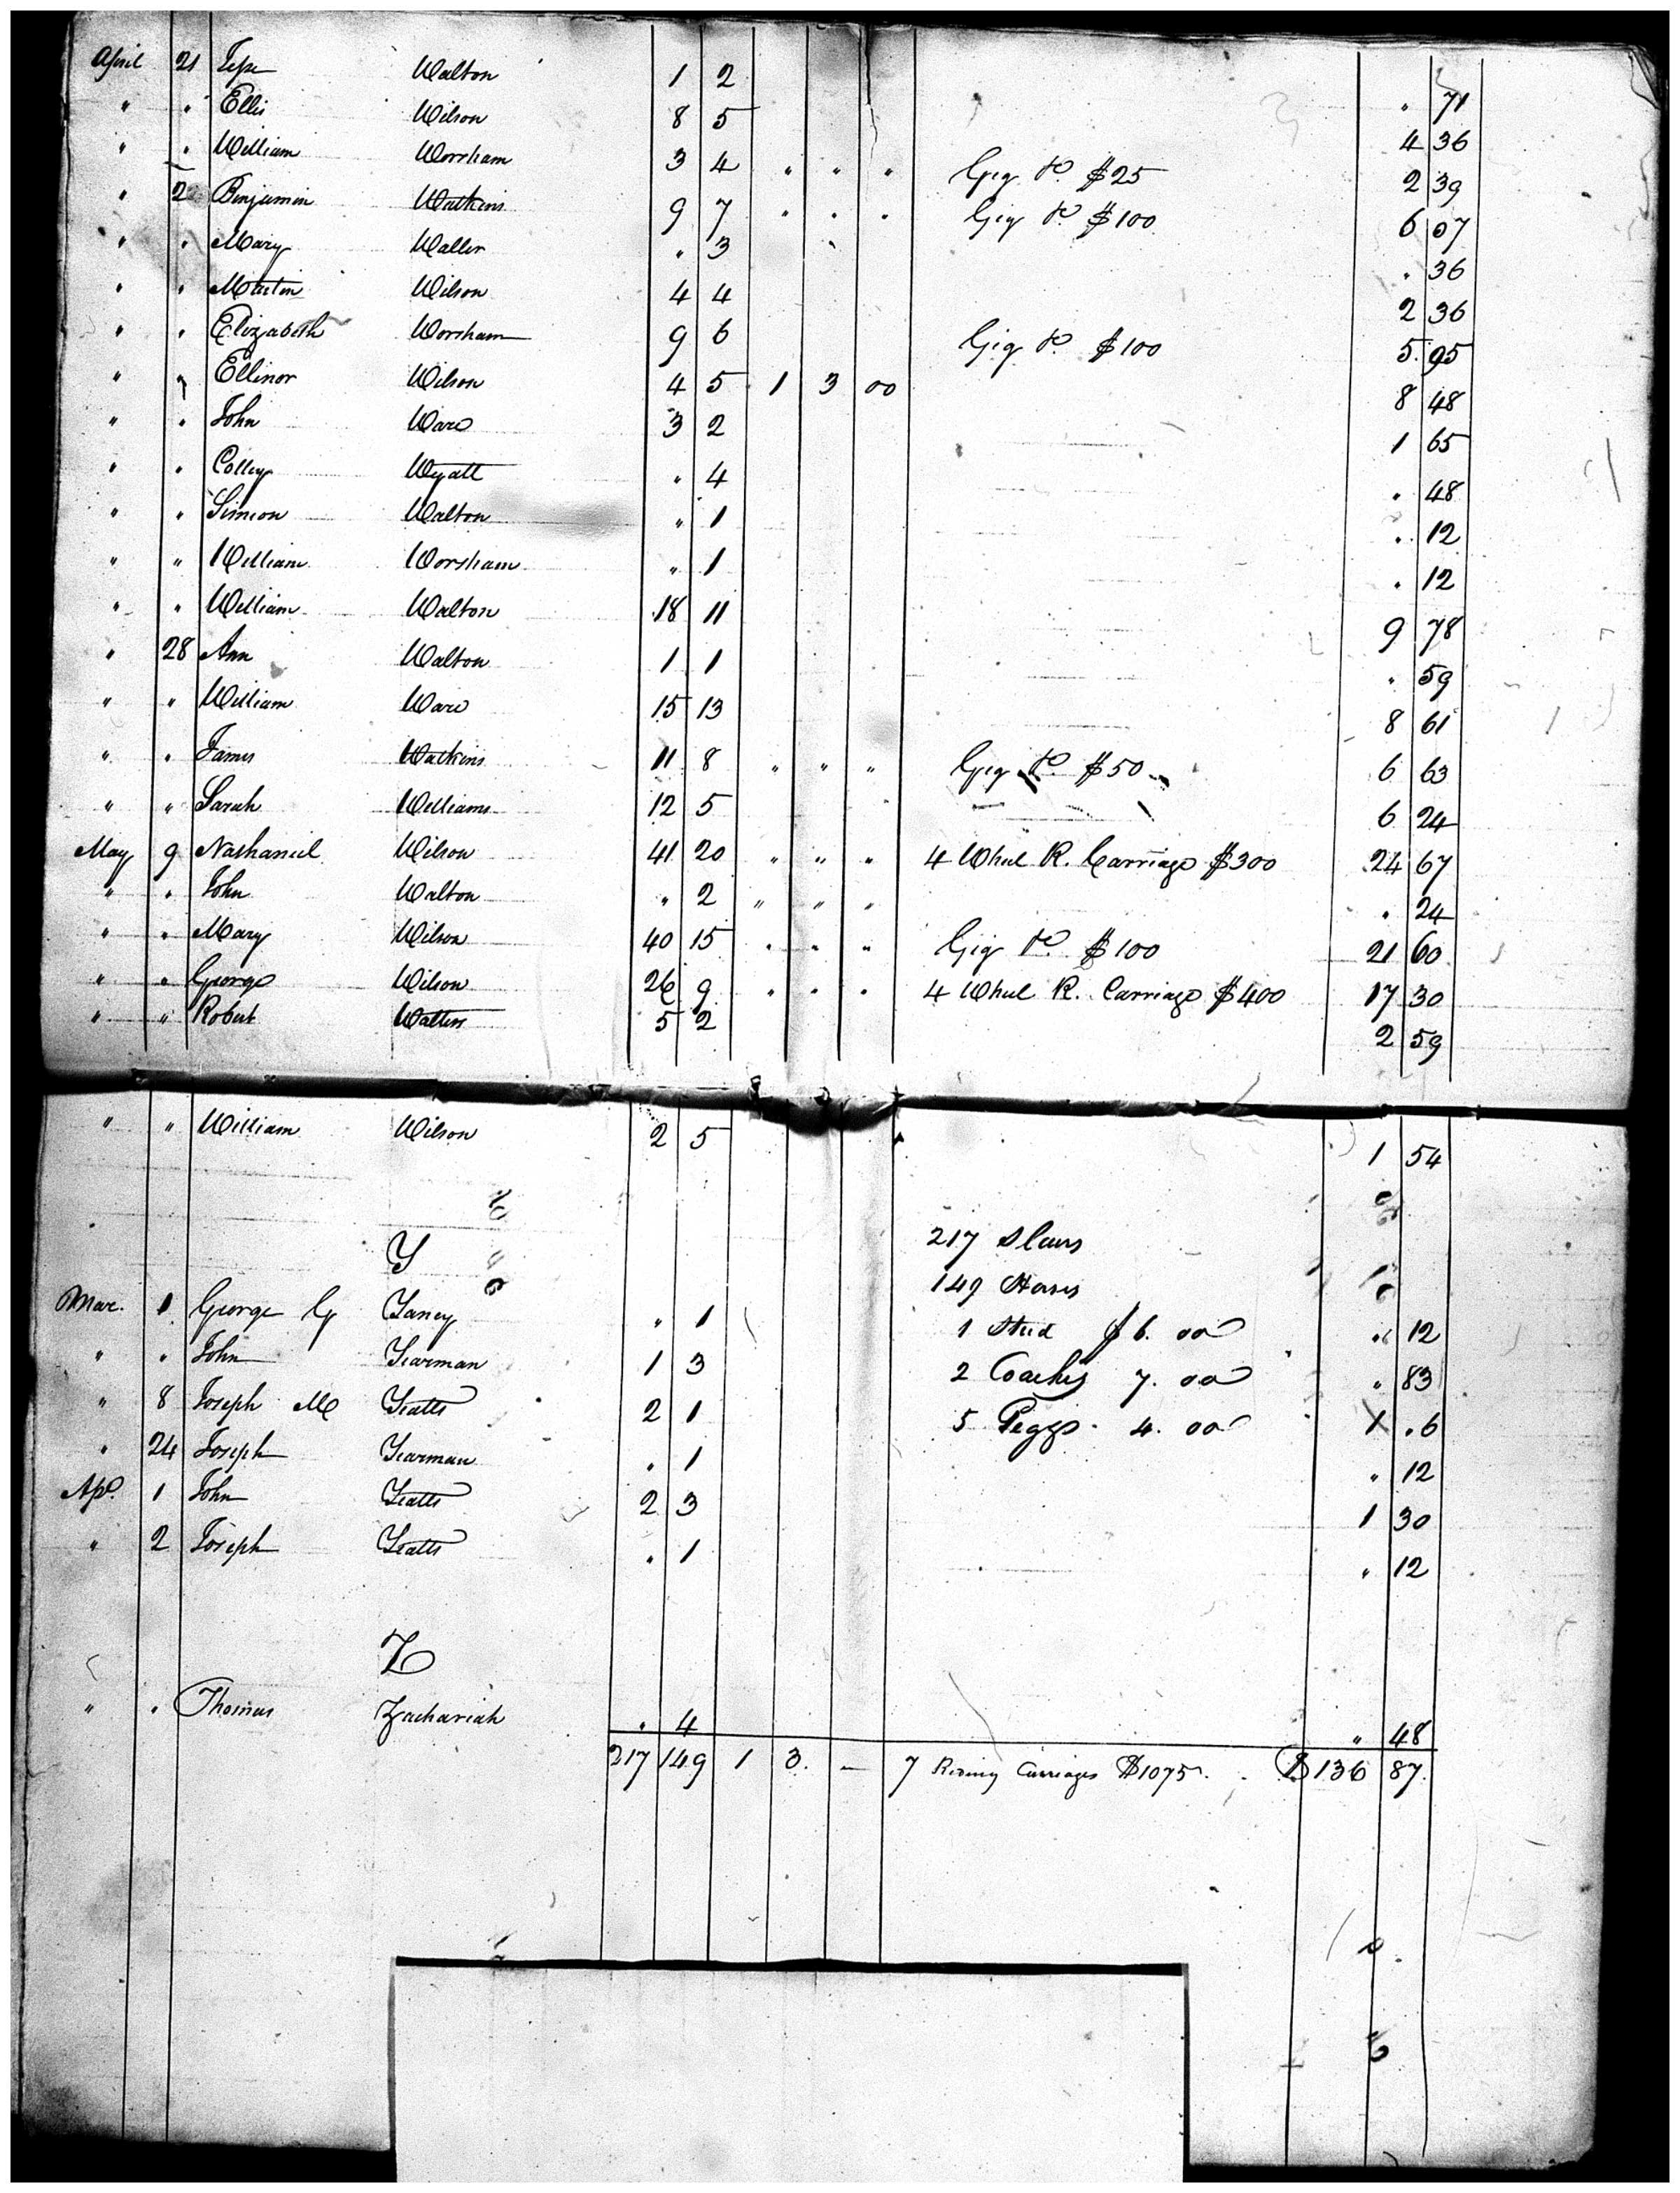 April 21 Jesse Walton 1 2 " 71
" " Ellis Wilson 8 5 4 36
" " William Worsham 3 4 " " " Gig Do. $25 2 39
" 2 Benjamin Watkins 9 7 " " " Gig Do. $100 6 07
" " Mary Waller " 3 " 36
" " Martin Wilson 4 4 2 36
" " Elizabeth Worsham 9 6 Gig Do. $100 5 95
" " Ellinor Wilson 4 5 1 3 00 8 48
" " John Ware 3 2 1 65
" " Colley Wyatt " 4 " 48
" " Simeon Walton " 1 " 12
" " William Worsham " 1 " 12
" " William Walton 18 11 9 78
" 28 Ann Walton 1 1 " 59
" " William Ware 15 13 8 61
" " James Watkins 11 8 " " " Gig Do. $50 6 63
" " Sarah Williams 12 5 6 24
May 9 Nathaniel Wilson 41 20 " " " 4 Wheel R. Carriage $300 24 67
" " John Walton " 2 " " " " 24
" " Mary Wilson 40 15 " " " Gig Do. $100 21 60
" " George Wilson 26 9 " " " 4 Wheel R. Carriage $400 17 30
" " Robert Walters 5 2 2 59
" " William Wilson 2 5 1 54
217 Slaves
Y
149 Horses
Mar. 1 George G Yancy " 1 1 Stud $6. 00 " 12
" " John Yearman 1 3 2 Coaches 7. 00 " 83
" 8 Joseph M Yeatts 2 1 5 Peggs. 4. 00 1 . 6
" 24 Joseph Yearman " 1 " 12
Apl. 1 John Yeatts 2 3 1 30
" 2 Joseph Yeatts " 1 " 12
Z
" " Thomas Zachariah " 4 " 48
217 149 1 3. — 7 Riding Carriages $1075. $136 87.